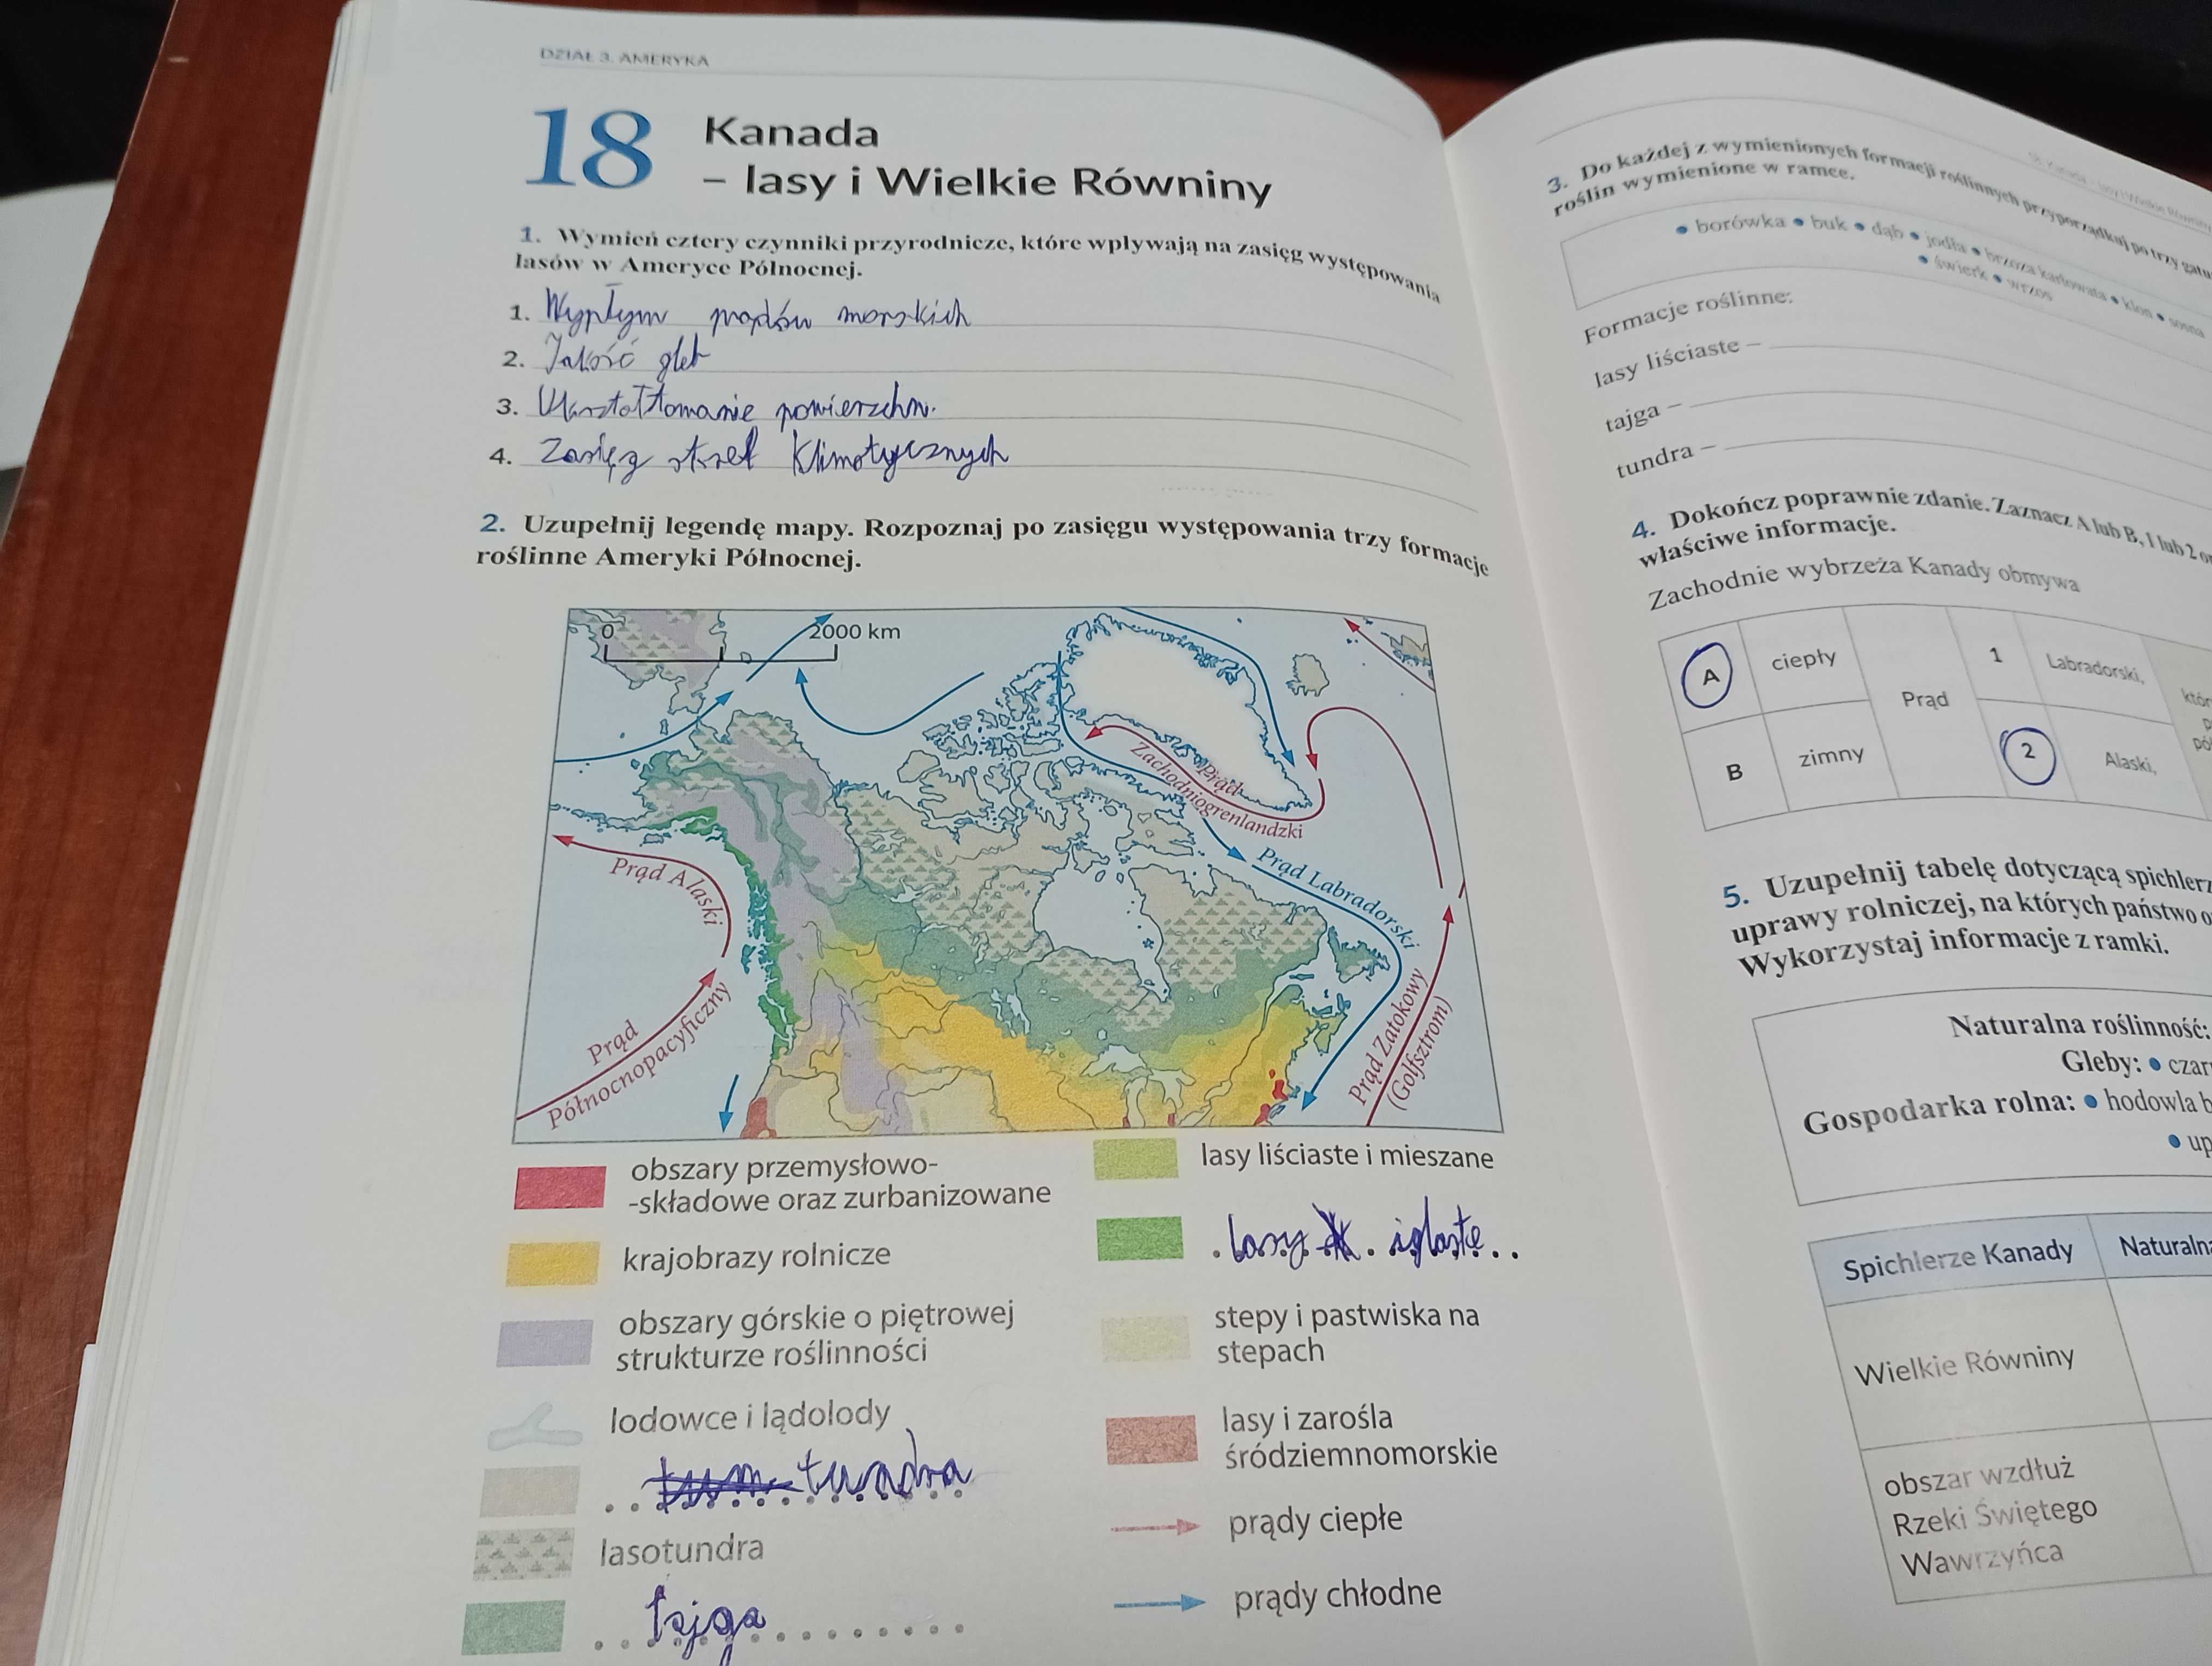 DZIAŁ 3. AMERYKA
18 Kanada
– lasy i Wielkie Równiny
1. Wymień cztery czynniki przyrodnicze, które wpływają na zasięg występowania
lasów w Ameryce Północnej.
1. Wypłym prądów morskich
2. Jakość gleb
3. Ukształtowanie powierzchn.
4. Zasięg stref klimatycznych
2. Uzupełnij legendę mapy. Rozpoznaj po zasięgu występowania trzy formacje
roślinne Ameryki Północnej.
0 2000 km
Prąd
Zachodniogrenlandzki
Prąd Alaski
Prąd Labradorski
Prąd
Północnopacyficzny
Prąd Zatokowy
(Golfsztrom)
obszary przemysłowo-
-składowe oraz zurbanizowane
krajobrazy rolnicze
obszary górskie o piętrowej
strukturze roślinności
lodowce i lądolody
tundra
lasotundra
tajga
lasy liściaste i mieszane
lasy iglastę
stepy i pastwiska na
stepach
lasy i zarośla
śródziemnomorskie
prądy ciepłe
prądy chłodne
18. Kanada – lasy i Wielkie Równiny
3. Do każdej z wymienionych formacji roślinnych przyporządkuj po trzy gatu
roślin wymienione w ramce.
• borówka • buk • dąb • jodła • brzoza karłowata • klon • sosna
• świerk • wrzos
Formacje roślinne:
lasy liściaste –
tajga –
tundra –
4. Dokończ poprawnie zdanie. Zaznacz A lub B, 1 lub 2 or
właściwe informacje.
Zachodnie wybrzeża Kanady obmywa
A ciepły Prąd 1 Labradorski, któr
B zimny 2 Alaski, pół
5. Uzupełnij tabelę dotyczącą spichlerz
uprawy rolniczej, na których państwo o
Wykorzystaj informacje z ramki.
Naturalna roślinność:
Gleby: • czar
Gospodarka rolna: • hodowla b
• up
Spichlerze Kanady Naturalna
Wielkie Równiny
obszar wzdłuż
Rzeki Świętego
Wawrzyńca